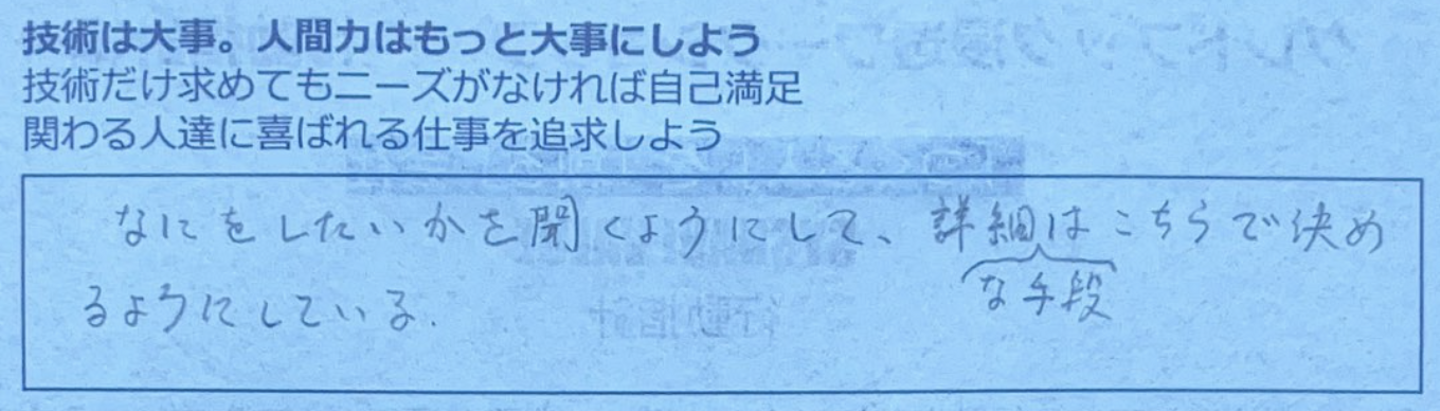 技術は大事。人間力はもっと大事にしよう
技術だけ求めてもニーズがなければ自己満足
関わる人達に喜ばれる仕事を追求しよう
なにをしたいかを聞くようにして、詳細はこちらで決め
な手段
るようにしている.
行動指針